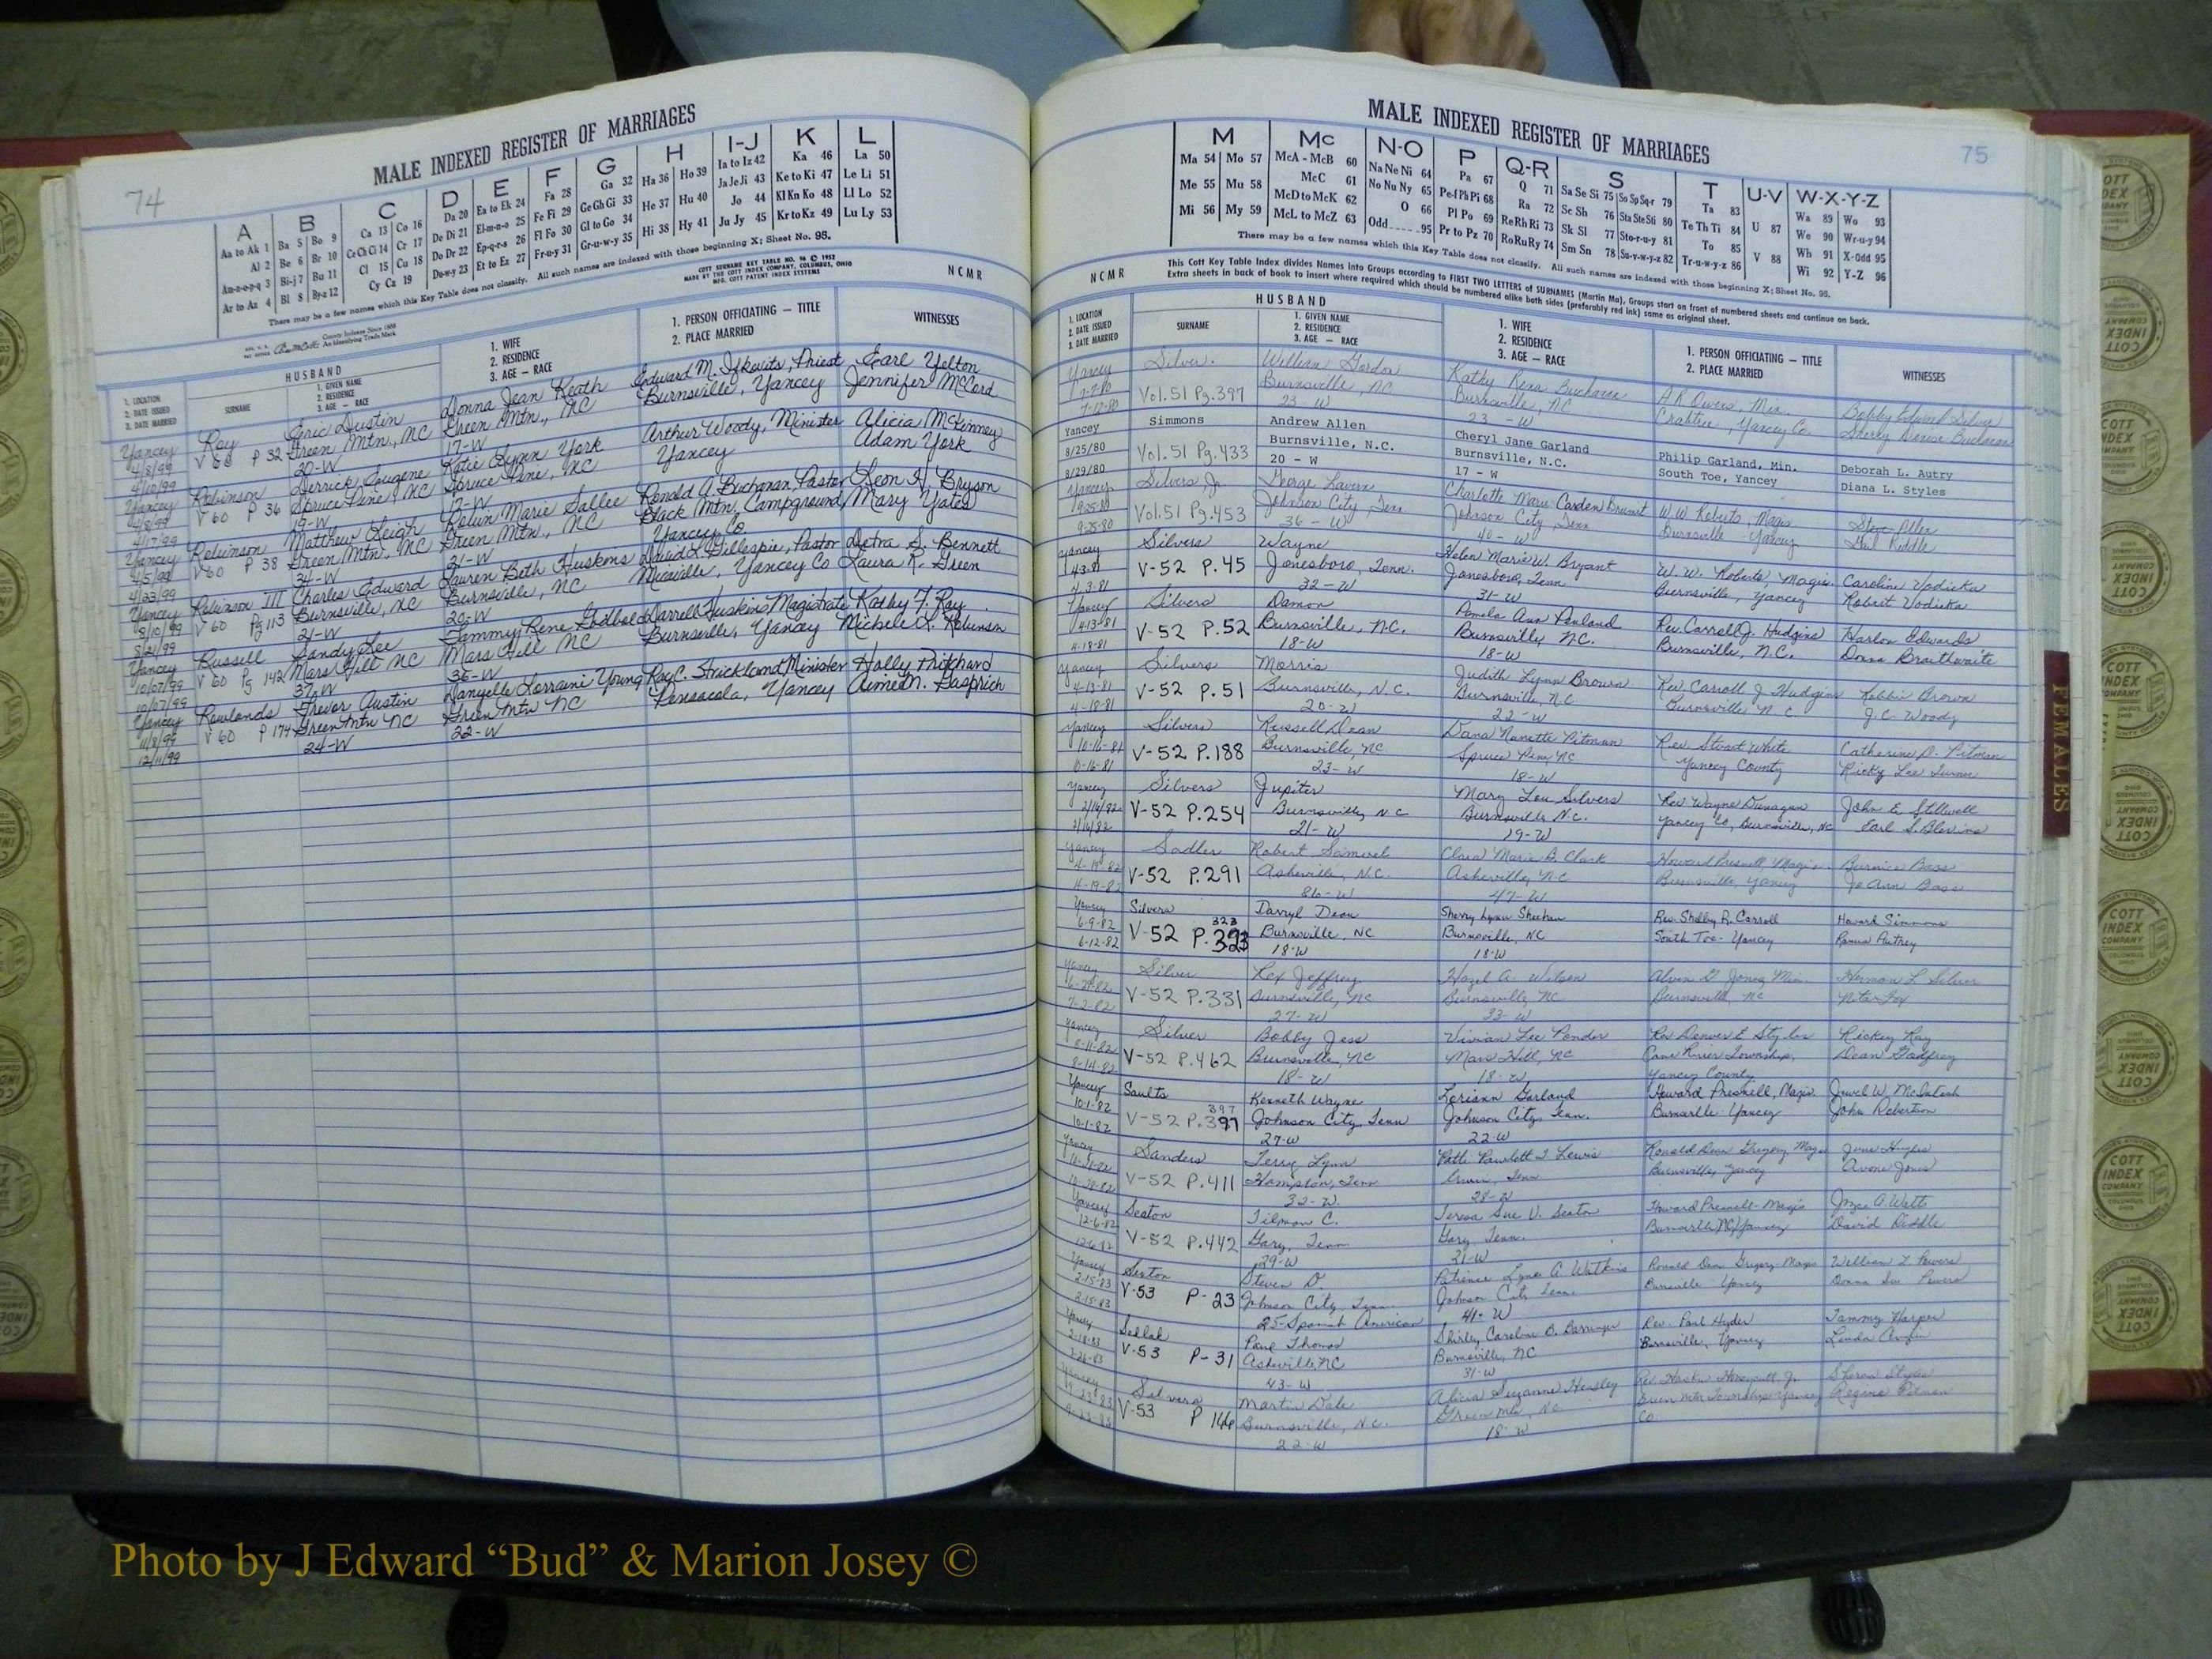 74
MALE INDEXED REGISTER OF MARRIAGES
A B C D E F G H I-J K L
Aa to Ak 1 Ba 5 Bo 9 Ca 13 Co 16 Da 20 Ea to Ek 24 Fa 28 Ga 32 Ha 36 Ho 39 Ia to Iz 42 Ka 46 La 50
Al 2 Be 6 Br 10 Ce Ch Ci 14 Cr 17 De Di 21 El-m-n-o 25 Fe Fi 29 Ge Gh Gi 33 He 37 Hu 40 Ja Je Ji 43 Ke to Ki 47 Le Li 51
Am-n-o-p-q 3 Bi-j 7 Bu 11 Cl 15 Cu 18 Do Dr 22 Ep-q-r-s 26 Fl Fo 30 Gl to Go 34 Hi 38 Hy 41 Jo 44 Kl Kn Ko 48 Ll Lo 52
Ar to Az 4 Bl 8 By-z 12 Cy Cz 19 Du-w-y 23 Et to Ez 27 Fr-u-y 31 Gr-u-w-y 35 Ju Jy 45 Kr to Kz 49 Lu Ly 53
There may be a few names which this Key Table does not classify. All such names are indexed with those beginning X; Sheet No. 95.
COTT SURNAME KEY TABLE NO. 96 © 1952
MADE BY THE COTT INDEX COMPANY, COLUMBUS, OHIO
MFG. COTT PATENT INDEX SYSTEMS
NCMR
County Indexes Since 1888
An Identifying Trade Mark
1. LOCATION
2. DATE ISSUED
3. DATE MARRIED
HUSBAND
SURNAME
1. GIVEN NAME
2. RESIDENCE
3. AGE — RACE
1. WIFE
2. RESIDENCE
3. AGE — RACE
1. PERSON OFFICIATING — TITLE
2. PLACE MARRIED
WITNESSES
Yancey Ray Eric Dustin Donna Jean Keath Edward M. Priest Earl Yelton
4/8/99 V 60 P 32 Green Mtn., NC Green Mtn., NC Burnsville, Yancey Jennifer McCord
4/10/99 20-W 17-W
Yancey Robinson Derrick Eugene Katie Lynn York Arthur Woody, Minister Alicia McKinney
4/8/99 V 60 P 36 Spruce Pine, NC Spruce Pine, NC Yancey Adam York
4/17/99 19-W 17-W
Yancey Robinson Matthew Leigh Robin Marie Sallee Ronald A. Buchanan, Pastor Leon H. Bryson
4/5/99 V 60 P 38 Green Mtn., NC Green Mtn., NC Black Mtn. Campground, Mary Yates
4/23/99 34-W 21-W Yancey Co
Yancey Robinson III Charles Edward Lauren Beth Huskins David L. Gillespie, Pastor Detra S. Bennett
8/10/99 V 60 Pg 113 Burnsville, NC Burnsville, NC Micaville, Yancey Co Laura R. Green
8/21/99 21-W 20-W
Yancey Russell Randy Lee Tammy Rene Godbold Darrell Huskins Magistrate Kathy F. Ray
10/07/99 V 60 Pg 142 Mars Hill NC Mars Hill NC Burnsville, Yancey Michele L. Robinson
10/07/99 37-W 35-W
Yancey Rowlands Trevor Austin Danyelle Lorraine Young Ray C. Strickland Minister Holly Pritchard
11/8/99 V 60 P 174 Green Mtn NC Green Mtn NC Pensacola, Yancey Aimee N. Gasprich
12/11/99 24-W 22-W
MALE INDEXED REGISTER OF MARRIAGES
75
M Mc N-O P Q-R S T U-V W-X-Y-Z
Ma 54 Mo 57 McA - McB 60 Na Ne Ni 64 Pa 67 Q 71 Sa Se Si 75 So Sp Sq-r 79 Ta 83 Wa 89 Wo 93
Me 55 Mu 58 McC 61 No Nu Ny 65 Pe-f Ph Pi 68 Ra 72 Sc Sh 76 Sta Ste Sti 80 Te Th Ti 84 U 87 We 90 Wr-u-y 94
Mi 56 My 59 McD to McK 62 O 66 Pl Po 69 Re Rh Ri 73 Sk Sl 77 Sto-r-u-y 81 To 85 Wh 91 X-Odd 95
McL to McZ 63 Odd 95 Pr to Pz 70 Ro Ru Ry 74 Sm Sn 78 Su-v-w-y-z 82 Tr-u-w-y-z 86 V 88 Wi 92 Y-Z 96
There may be a few names which this Key Table does not classify. All such names are indexed with those beginning X; Sheet No. 95.
NCMR
This Cott Key Table Index divides Names into Groups according to FIRST TWO LETTERS of SURNAMES (Martin Ma), Groups start on front of numbered sheets and continue on back.
Extra sheets in back of book to insert where required which should be numbered alike both sides (preferably red ink) same as original sheet.
1. LOCATION
2. DATE ISSUED
3. DATE MARRIED
HUSBAND
SURNAME
1. GIVEN NAME
2. RESIDENCE
3. AGE — RACE
1. WIFE
2. RESIDENCE
3. AGE — RACE
1. PERSON OFFICIATING — TITLE
2. PLACE MARRIED
WITNESSES
Yancey Silver William Gordon Kathy Rena Buchanan A R Owens, Min. Bobby Edward Silver
Vol. 51 Pg. 397 Burnsville, NC Burnsville, NC Crabtree, Yancey Co. Sherry Denise Buchanan
7-12-80 23 - W 23 - W
Yancey Simmons Andrew Allen Cheryl Jane Garland Philip Garland, Min. Deborah L. Autry
8/25/80 Vol. 51 Pg. 433 Burnsville, N.C. Burnsville, N.C. South Toe, Yancey Diana L. Styles
8/29/80 20 - W 17 - W
Yancey Silvers Jr George Lavern Charlotte Marie Carden W.W. Roberts, Magis. Steve Allen
9-25-80 Vol. 51 Pg. 453 Johnson City, Tenn Johnson City, Tenn Burnsville - Yancey Gail Riddle
9-25-80 36 - W 40 - W
Yancey Silvers Wayne Helen Marie W. Bryant W. W. Roberts, Magis. Caroline Vodicka
4-3-81 V-52 P. 45 Jonesboro, Tenn. Jonesboro, Tenn Burnsville, Yancey Robert Vodicka
4-3-81 32 - W 31 - W
Yancey Silvers Damon Pamela Ann Penland Rev. Carroll J. Hudgins Harlon Edwards
4-13-81 V-52 P. 52 Burnsville, N.C. Burnsville, N.C. Burnsville, N.C. Donna Braithwaite
4-18-81 18-W 18-W
Yancey Silvers Morris Judith Lynn Brown Rev. Carroll J Hudgins Robbie Brown
4-13-81 V-52 P. 51 Burnsville, N.C. Burnsville, N.C. Burnsville N C. J.C. Woody
4-18-81 20-W 22-W
Yancey Silvers Russell Dean Dana Nanette Pitman Rev. Stuart White Catherine D. Pitman
10-16-81 V-52 P. 188 Burnsville, NC Spruce Pine NC Yancey County Ricky Lee Turner
10-16-81 23-W 18-W
Yancey Silvers Jupiter Mary Lou Silvers Rev Wayne Dunagan John E. Stillwell
2/16/82 V-52 P. 254 Burnsville, N C Burnsville N.C. Yancey Co, Burnsville, NC Earl S. Blevins
2/16/82 21-W 19-W
Yancey Sadler Robert Samuel Clara Marie B. Clark Howard Presnell Magis. Burnice Bass
4-19-82 V-52 P. 291 Asheville, N.C. Asheville, N.C. Burnsville, Yancey Jo Ann Bass
4-19-82 86-W 47-W
Yancey Silvers Darryl Dean Sherry Lynn Sheehan Rev. Shelby R. Carroll Howard Simmons
6-9-82 V-52 P. 323 323 Burnsville, NC Burnsville, NC South Toe - Yancey Autrey
6-12-82 18-W 18-W
Yancey Silver Rex Jeffrey Hazel A. Wilson Alvin D. Jones Min. Herman L Silver
V-52 P. 331 Burnsville, NC Burnsville, NC Burnsville, NC Fox
7-2-82 27-W 33-W
Yancey Silver Bobby Jess Vivian Lee Ponder Rev Denver E Styles Rickey Ray
8-11-82 V-52 P. 462 Burnsville, NC Mars Hill, NC Cane River Township, Dean Godfrey
8-14-82 18-W 18-W Yancey County
Yancey Saults Kenneth Wayne Loriann Garland Howard Presnell, Magis. Jewel W. McIntosh
10-1-82 V-52 P. 397 397 Johnson City, Tenn Johnson City, Tenn. Burnsville - Yancey John Robertson
10-1-82 27-W 22-W
Yancey Sanders Terry Lynn Patti J Lewis Ronald Dean Gregory Mag. June Hughes
V-52 P. 411 Hampton, Tenn Erwin, Tenn Burnsville, Yancey Jones
32-W. 28-W
Yancey Sexton Tilmon C. Teresa Sue V. Sexton Howard Presnell - Magis A Watts
12-6-82 V-52 P. 442 Gary, Tenn Gary, Tenn. Burnsville NC, Yancey David Riddle
12-6-82 29-W 21-W
Yancey Sexton Steven D. Patience Lynn A Watkins Ronald Dean Gregory - Magis William T Powers
2-15-83 V-53 P-23 Johnson City, Tenn. Johnson City Tenn. Burnsville - Yancey Donna Sue Powers
2-15-83 25-Spanish American 41-W
Yancey Paul Thomas Shirley Caroline B. Barringer Rev. Paul Hyder Tammy Harper
2-18-83 V-53 P-31 Asheville NC Burnsville, NC Burnsville, Yancey Linda
43-W 31-W
Yancey Silvers Martin Dale Alicia Suzanne Hensley Rev. Sharon Styles
V-53 P 144 Burnsville, N.C. Green Mtn, NC Green Mtn Township - Yancey Regina Pitman
22-W 18-W Co
FEMALES
COTT
INDEX
COMPANY
Photo by J Edward “Bud” & Marion Josey ©